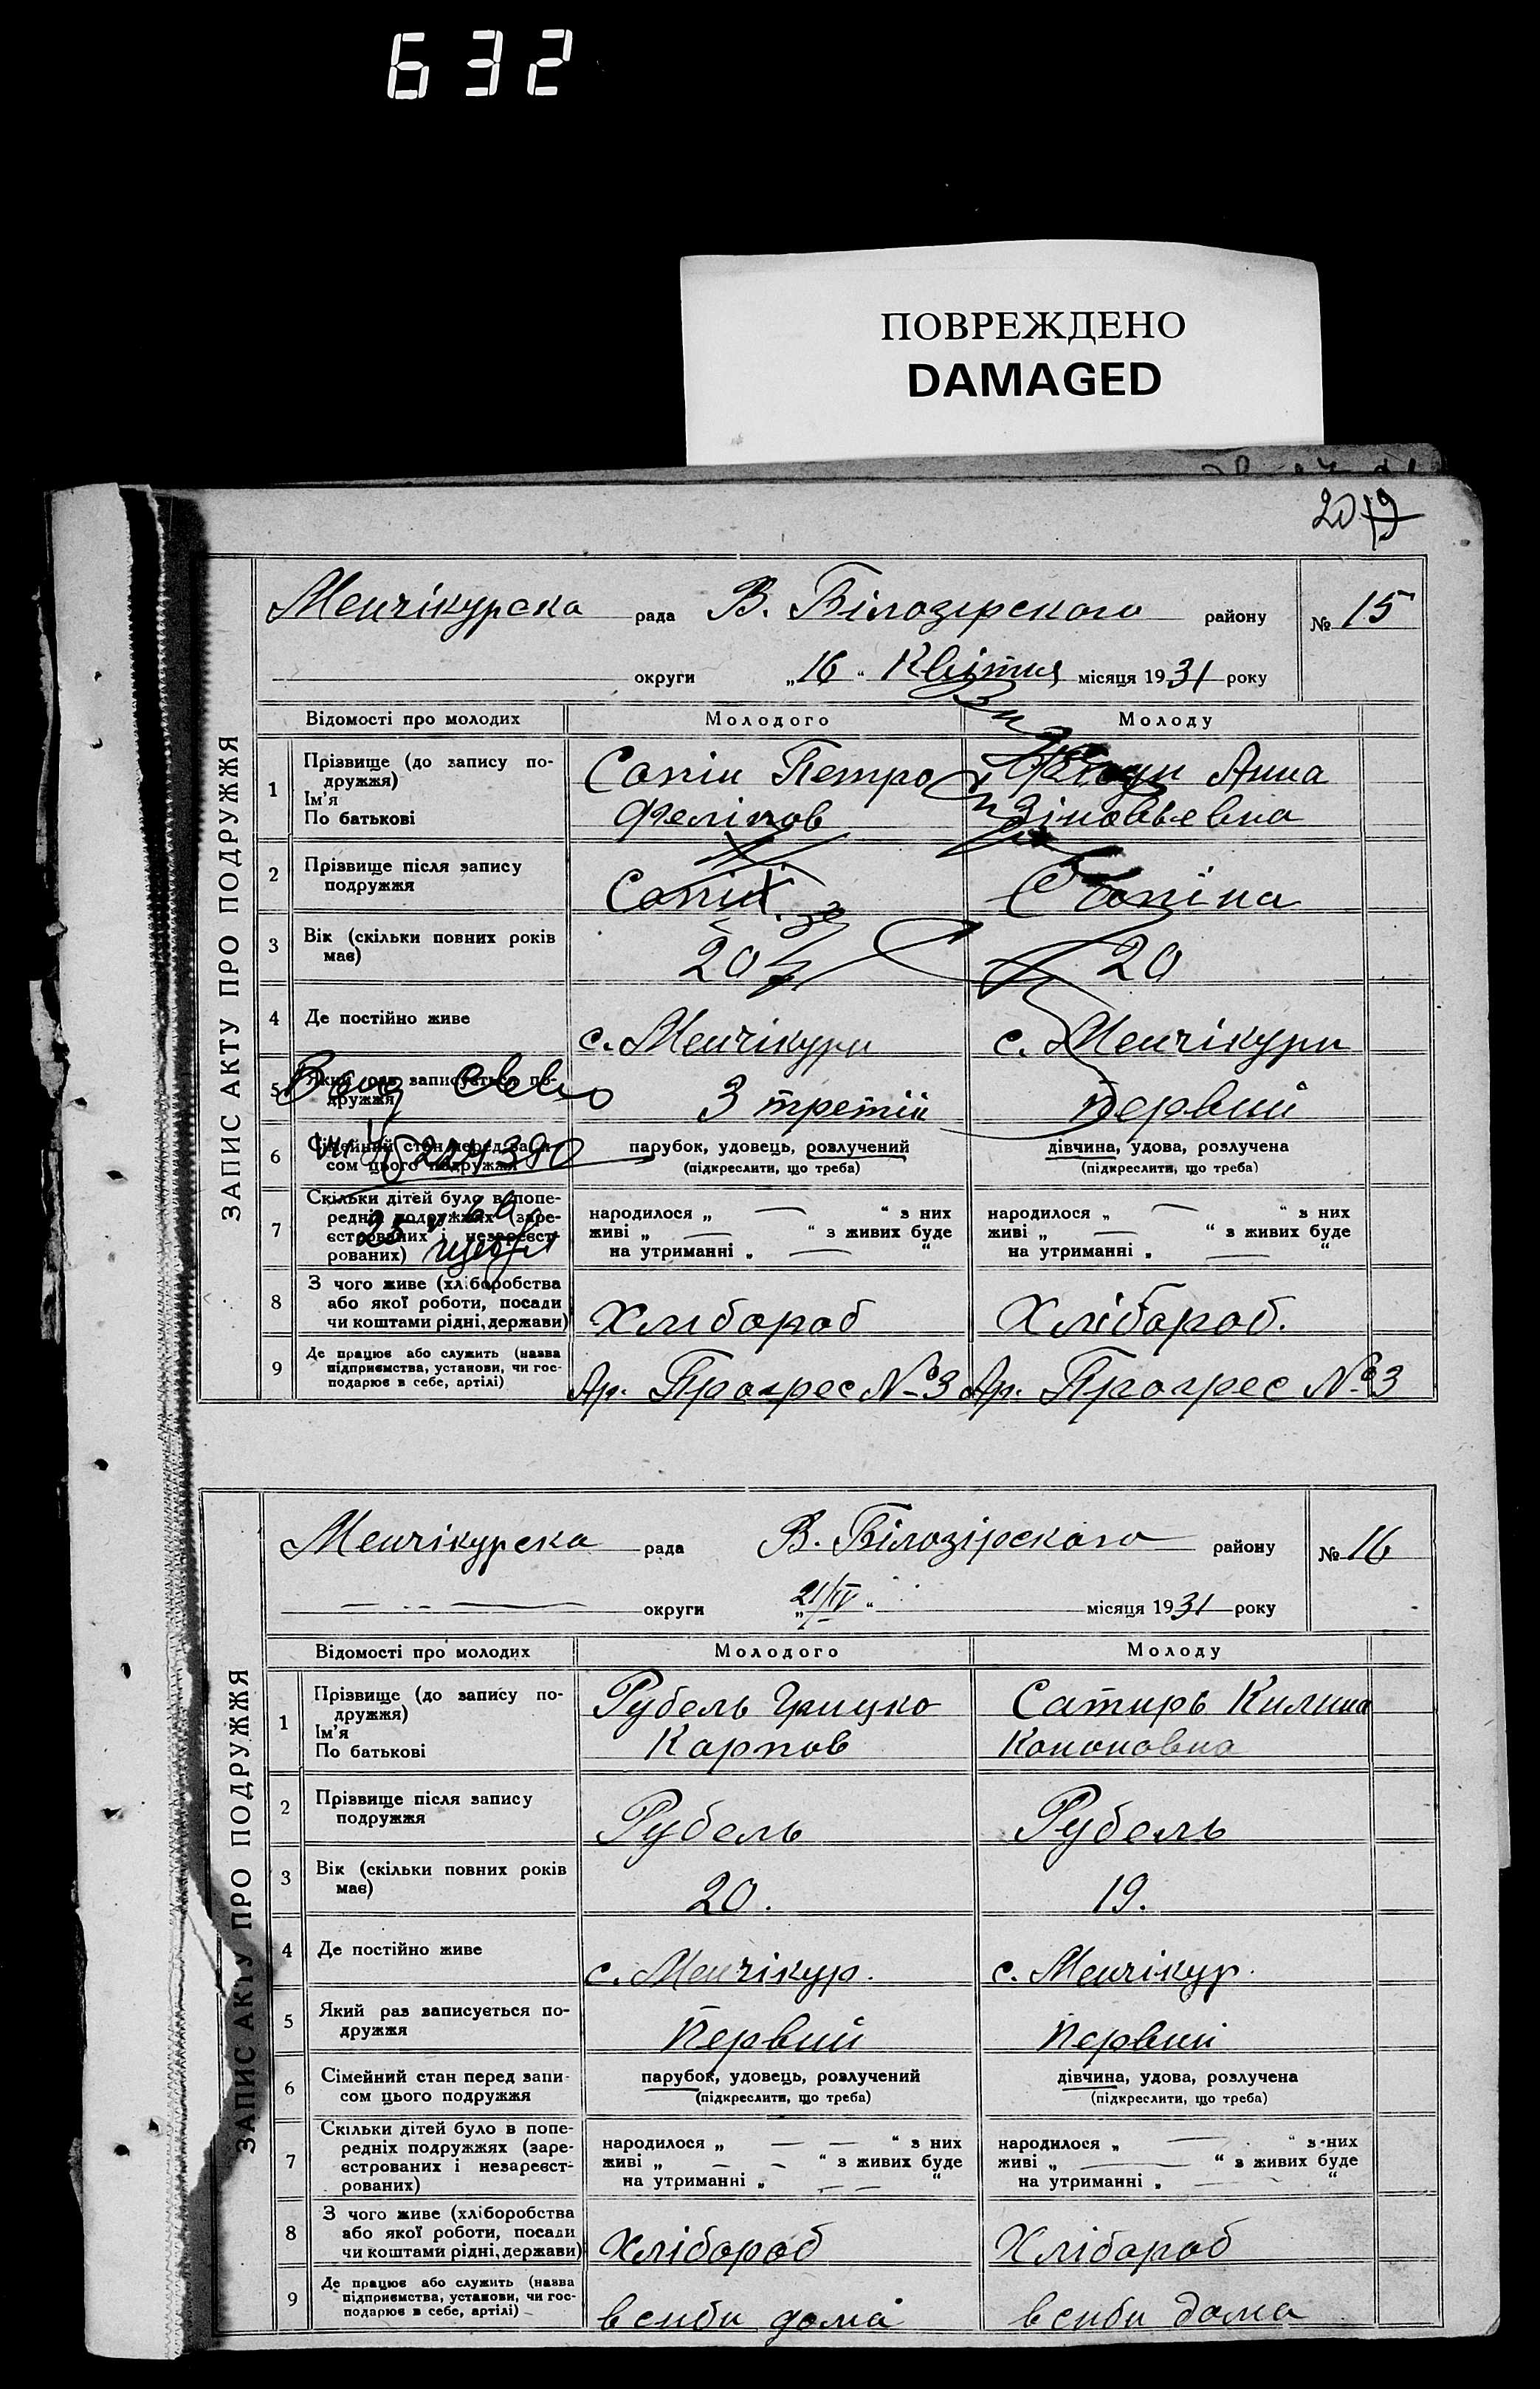 632
ПОВРЕЖДЕНО
DAMAGED
20
ЗАПИС АКТУ ПРО ПОДРУЖЖЯ
Менчікурска рада В. Білозірского району № 15
округи „16“ Квітня місяця 1931 року
Відомості про молодих Молодого Молоду
1 Прізвище (до запису по-
дружжя)
Ім'я
По батькові
Сопін Петро
Феліпов
Анна
Зіновьевна
2 Прізвище після запису
подружжя
Сопін
Сопіна
3 Вік (скільки повних років
має)
20
20
4 Де постійно живе
с. Менчікури
с. Менчікури
5 Який раз записується по-
дружжя
3 третій
первий
6 Сімейний стан перед запи-
сом цього подружжя
парубок, удовець, розлучений
(підкреслити, що треба)
дівчина, удова, розлучена
(підкреслити, що треба)
7 Скільки дітей було в попе-
редніх подружжях (заре-
єстрованих і незареєст-
рованих)
народилося „ — “ з них
живі „ — “ з живих буде
на утриманні „ — “
народилося „ — “ з них
живі „ — “ з живих буде
на утриманні „ — “
8 З чого живе (хліборобства
або якої роботи, посади
чи коштами рідні, держави)
Хлібороб
Хлібороб.
9 Де працює або служить (назва
підприємства, установи, чи гос-
подарює в себе, артілі)
Ар. Прогрес №3
Ар. Прогрес №3
ЗАПИС АКТУ ПРО ПОДРУЖЖЯ
Менчікурска рада В. Білозірского району № 16
округи „21/IV“ місяця 1931 року
Відомості про молодих Молодого Молоду
1 Прізвище (до запису по-
дружжя)
Ім'я
По батькові
Рубель Грицко
Карпов
Сатирь Килина
Кононовна
2 Прізвище після запису
подружжя
Рубель
Рубель
3 Вік (скільки повних років
має)
20.
19.
4 Де постійно живе
с. Менчікур.
с. Менчікур.
5 Який раз записується по-
дружжя
Первий
Первий
6 Сімейний стан перед запи-
сом цього подружжя
парубок, удовець, розлучений
(підкреслити, що треба)
дівчина, удова, розлучена
(підкреслити, що треба)
7 Скільки дітей було в попе-
редніх подружжях (заре-
єстрованих і незареєст-
рованих)
народилося „ — — “ з них
живі „ — — “ з живих буде
на утриманні „ — — “
народилося „ — “ з них
живі „ — “ з живих буде
на утриманні „ — “
8 З чого живе (хліборобства
або якої роботи, посади
чи коштами рідні, держави)
Хлібороб
Хлібороб
9 Де працює або служить (назва
підприємства, установи, чи гос-
подарює в себе, артілі)
в сиби дома
в сиби дома